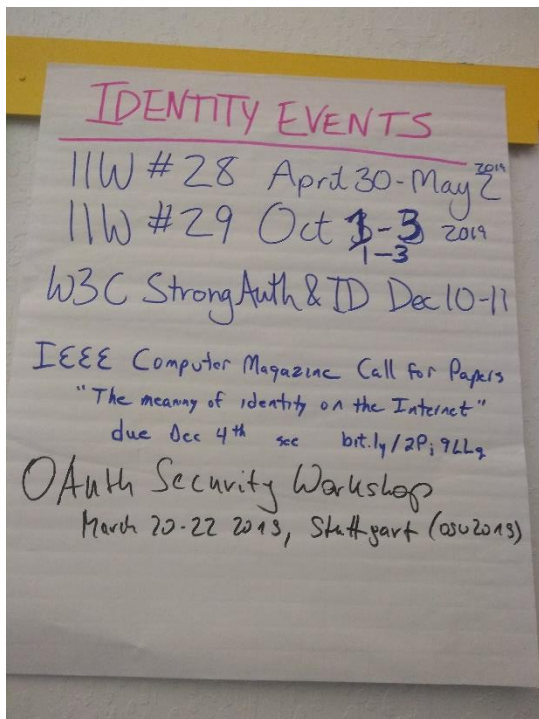 IDENTITY EVENTS
IIW #28 April 30-May 2 2019
IIW #29 Oct 1-3 2019
1-3
W3C Strong Auth & ID Dec 10-11
IEEE Computer Magazine Call for Papers
"The meaning of identity on the Internet"
due Dec 4th see bit.ly/2Pi9LLq
OAuth Security Workshop
March 20-22 2019, Stuttgart (osw2019)